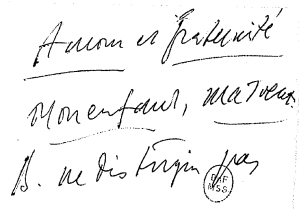 Amour et fraternité
Mon enfant, ma soeur.
B. ne distingue pas
BNF
MSS